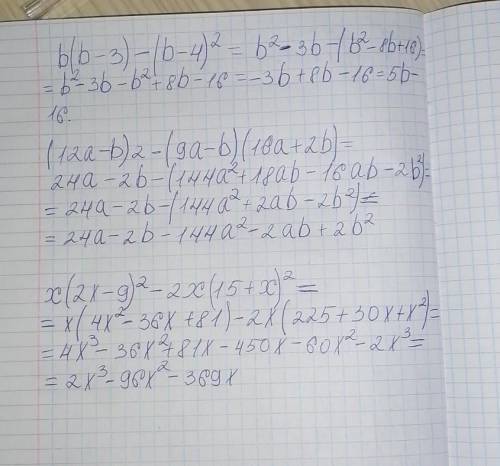 b(b-3)-(b-4)² = b²-3b-(b²-8b+16)=
= b²-3b-b²+8b-16=-3b+8b-16=5b-
16.
(12a-b)2-(9a-b)(16a+2b)=
24a-2b-(144a²+18ab-16ab-2b²)=
= 24a-2b-(144a²+2ab-2b²)=
= 24a-2b-144a²-2ab+2b²
x(2x-9)²-2x(15+x)²=
= x(4x²-36x+81)-2x(225+30x+x²)=
= 4x³-36x²+81x-450x-60x²-2x³=
= 2x³-96x²-369x